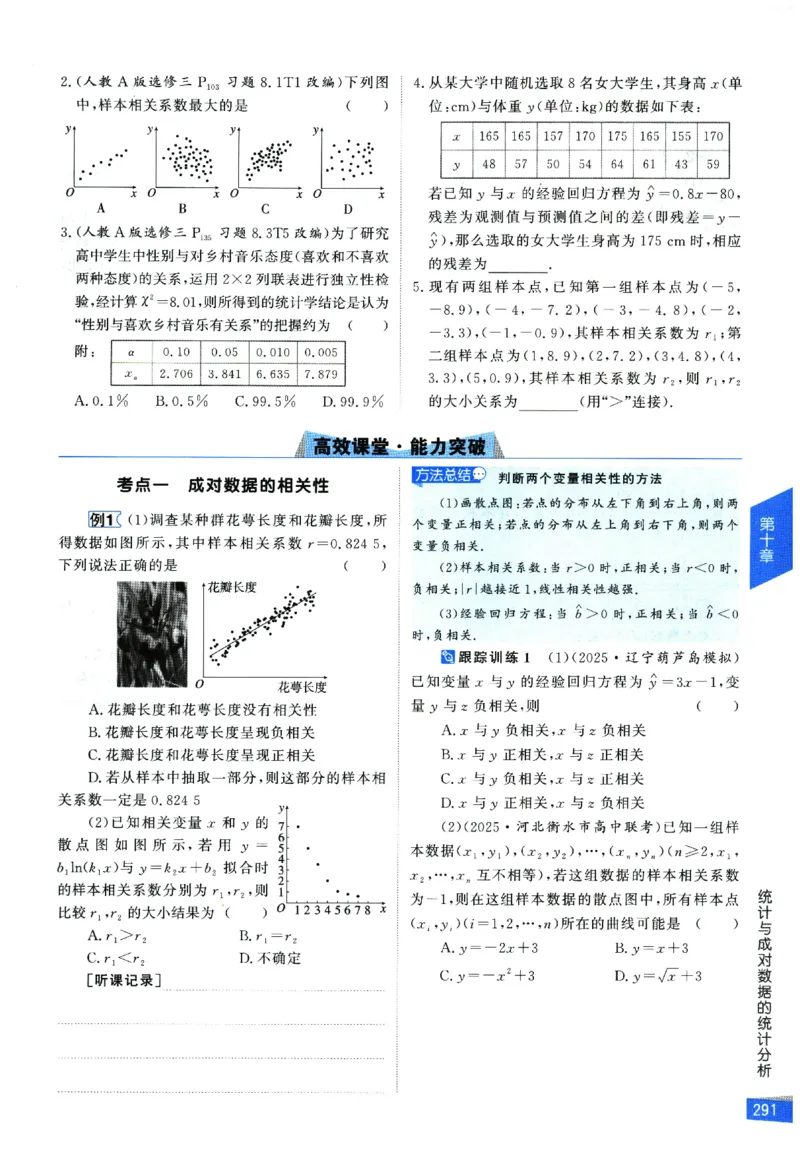 2.(人教 A 版选修三 P₁₀₃ 习题 8.1T1 改编)下列图
中,样本相关系数最大的是 ( )
y y y y
O x O x O x O x
A B C D
3.(人教 A 版选修三 P₁₃₅ 习题 8.3T5 改编)为了研究
高中学生中性别与对乡村音乐态度(喜欢和不喜欢
两种态度)的关系,运用 2×2 列联表进行独立性检
验,经计算 χ²=8.01,则所得到的统计学结论是认为
“性别与喜欢乡村音乐有关系”的把握约为 ( )
附:
α 0.10 0.05 0.010 0.005
xₐ 2.706 3.841 6.635 7.879
A.0.1% B.0.5% C.99.5% D.99.9%
4.从某大学中随机选取 8 名女大学生,其身高 x(单
位:cm)与体重 y(单位:kg)的数据如下表:
x 165 165 157 170 175 165 155 170
y 48 57 50 54 64 61 43 59
若已知 y 与 x 的经验回归方程为 ŷ=0.8x-80,
残差为观测值与预测值之间的差(即残差=y-
ŷ),那么选取的女大学生身高为 175 cm 时,相应
的残差为________.
5.现有两组样本点,已知第一组样本点为(-5,
-8.9),(-4,-7.2),(-3,-4.8),(-2,
-3.3),(-1,-0.9),其样本相关系数为 r₁;第
二组样本点为(1,8.9),(2,7.2),(3,4.8),(4,
3.3),(5,0.9),其样本相关系数为 r₂,则 r₁,r₂
的大小关系为________(用“>”连接).
高效课堂·能力突破
考点一 成对数据的相关性
例1 (1)调查某种群花萼长度和花瓣长度,所
得数据如图所示,其中样本相关系数 r=0.824 5,
下列说法正确的是 ( )
花瓣长度
O
花萼长度
A.花瓣长度和花萼长度没有相关性
B.花瓣长度和花萼长度呈现负相关
C.花瓣长度和花萼长度呈现正相关
D.若从样本中抽取一部分,则这部分的样本相
关系数一定是 0.824 5
(2)已知相关变量 x 和 y 的
散点图如图所示,若用 y =
b₁ln(k₁x)与 y=k₂x+b₂ 拟合时
的样本相关系数分别为 r₁,r₂,则
比较 r₁,r₂ 的大小结果为 ( )
y
7
6
5
4
3
2
1
O 1 2 3 4 5 6 7 8 x
A.r₁>r₂ B.r₁=r₂
C.r₁<r₂ D.不确定
[听课记录]
方法总结 判断两个变量相关性的方法
(1)画散点图:若点的分布从左下角到右上角,则两
个变量正相关;若点的分布从左上角到右下角,则两个
变量负相关.
(2)样本相关系数:当 r>0 时,正相关;当 r<0 时,
负相关;|r|越接近 1,线性相关性越强.
(3)经验回归方程:当 b̂>0 时,正相关;当 b̂<0
时,负相关.
跟踪训练 1 (1)(2025·辽宁葫芦岛模拟)
已知变量 x 与 y 的经验回归方程为 ŷ=3x-1,变
量 y 与 z 负相关,则 ( )
A.x 与 y 负相关,x 与 z 负相关
B.x 与 y 正相关,x 与 z 正相关
C.x 与 y 负相关,x 与 z 正相关
D.x 与 y 正相关,x 与 z 负相关
(2)(2025·河北衡水市高中联考)已知一组样
本数据(x₁,y₁),(x₂,y₂),…,(xₙ,yₙ)(n≥2,x₁,
x₂,…,xₙ 互不相等),若这组数据的样本相关系数
为-1,则在这组样本数据的散点图中,所有样本点
(xᵢ,yᵢ)(i=1,2,…,n)所在的曲线可能是 ( )
A.y=-2x+3 B.y=x+3
C.y=-x²+3 D.y=√x+3
第十章
统计与成对数据的统计分析
291